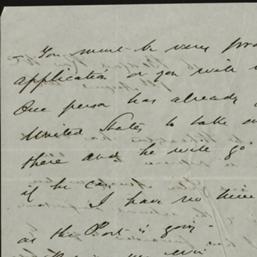 You must be very
application or you will
One person has already
United States to take
there and he will go
if he can
I have no time
as the Post is going